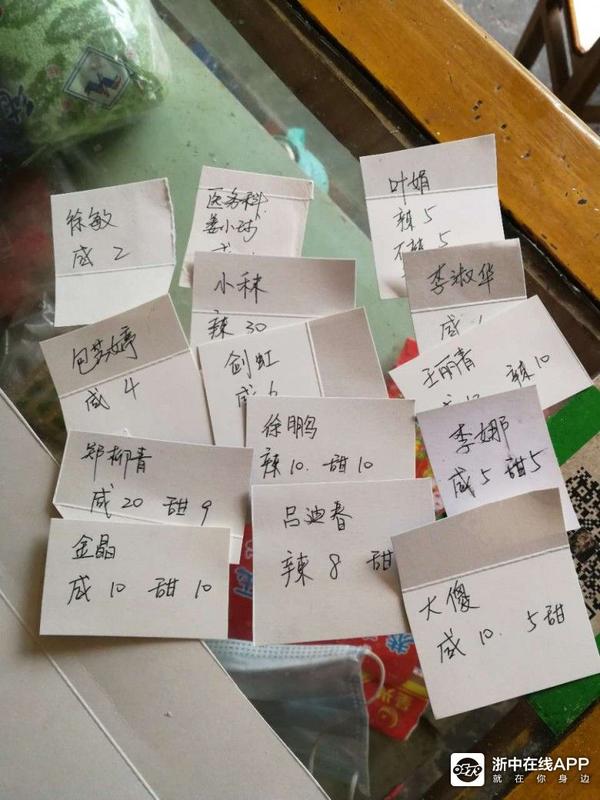 徐敏
咸 2
医务科
叶娟
辣 5
5
小秣
辣 30
李淑华
包梦婷
咸 4
剑虹
王丽青 辣 10
徐鹏
辣 10. 甜 10
李娜
咸 5 甜 5
郑柳青
咸 20 甜 9
吕迪春
辣 8 甜
金晶
咸 10 甜 10
大傻
咸 10. 5 甜
浙中在线APP
就在你身边